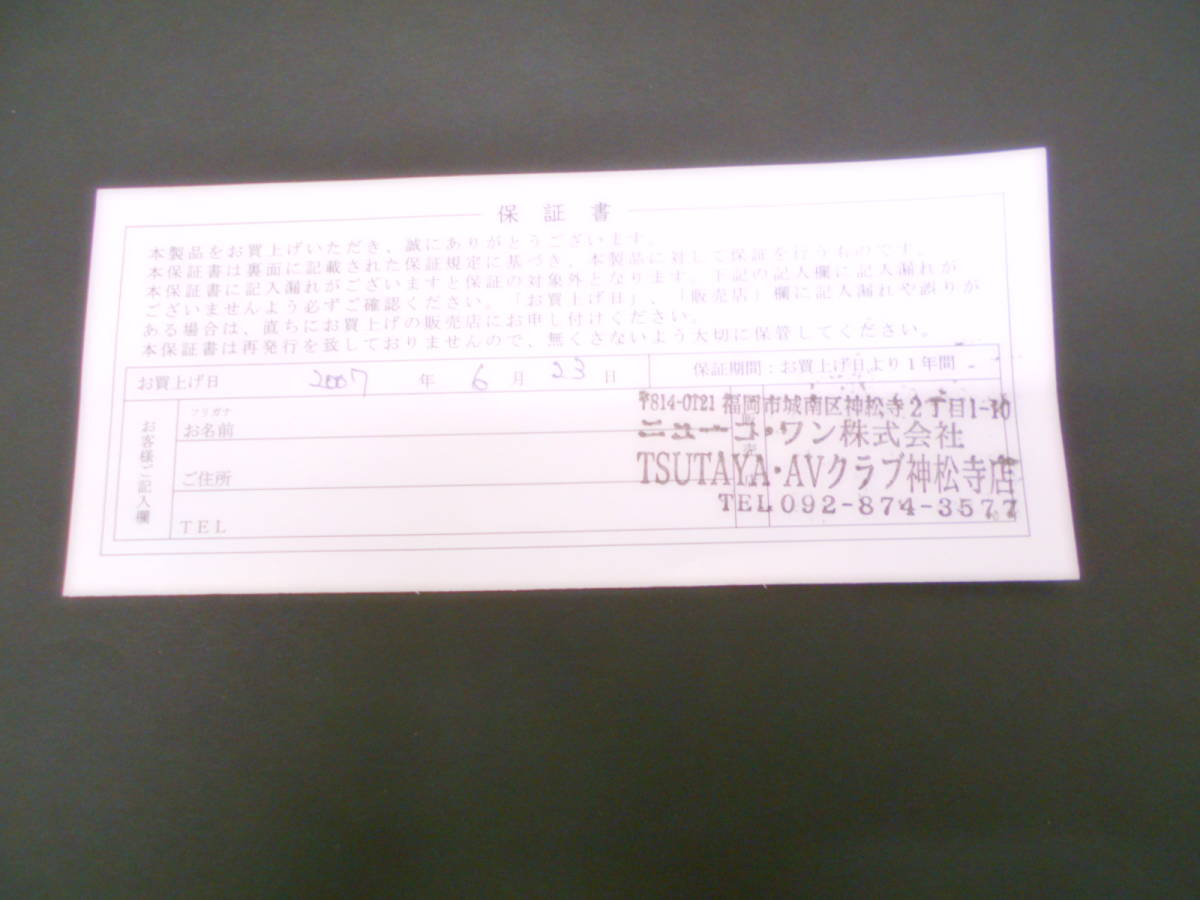 保証書
本製品をお買上げいただき、誠にありがとうございます。
本保証書は裏面に記載された保証規定に基づき、本製品に対して保証を行うものです。
本保証書に記入漏れがございますと保証の対象外となります。下記の記入欄に記入漏れが
ございませんよう必ずご確認ください。「お買上げ日」、「販売店」欄に記入漏れや誤りが
ある場合は、直ちにお買上げの販売店にお申し付けください。
本保証書は再発行を致しておりませんので、無くさないよう大切に保管してください。
お買上げ日 2007 年 6 月 23 日 保証期間：お買上げ日より1年間
お客様ご記入欄
フリガナ
お名前
ご住所
TEL
販売
〒814-0121 福岡市城南区神松寺2丁目1-10
ニューコ・ワン株式会社
TSUTAYA・AVクラブ神松寺店
TEL 092-874-3577